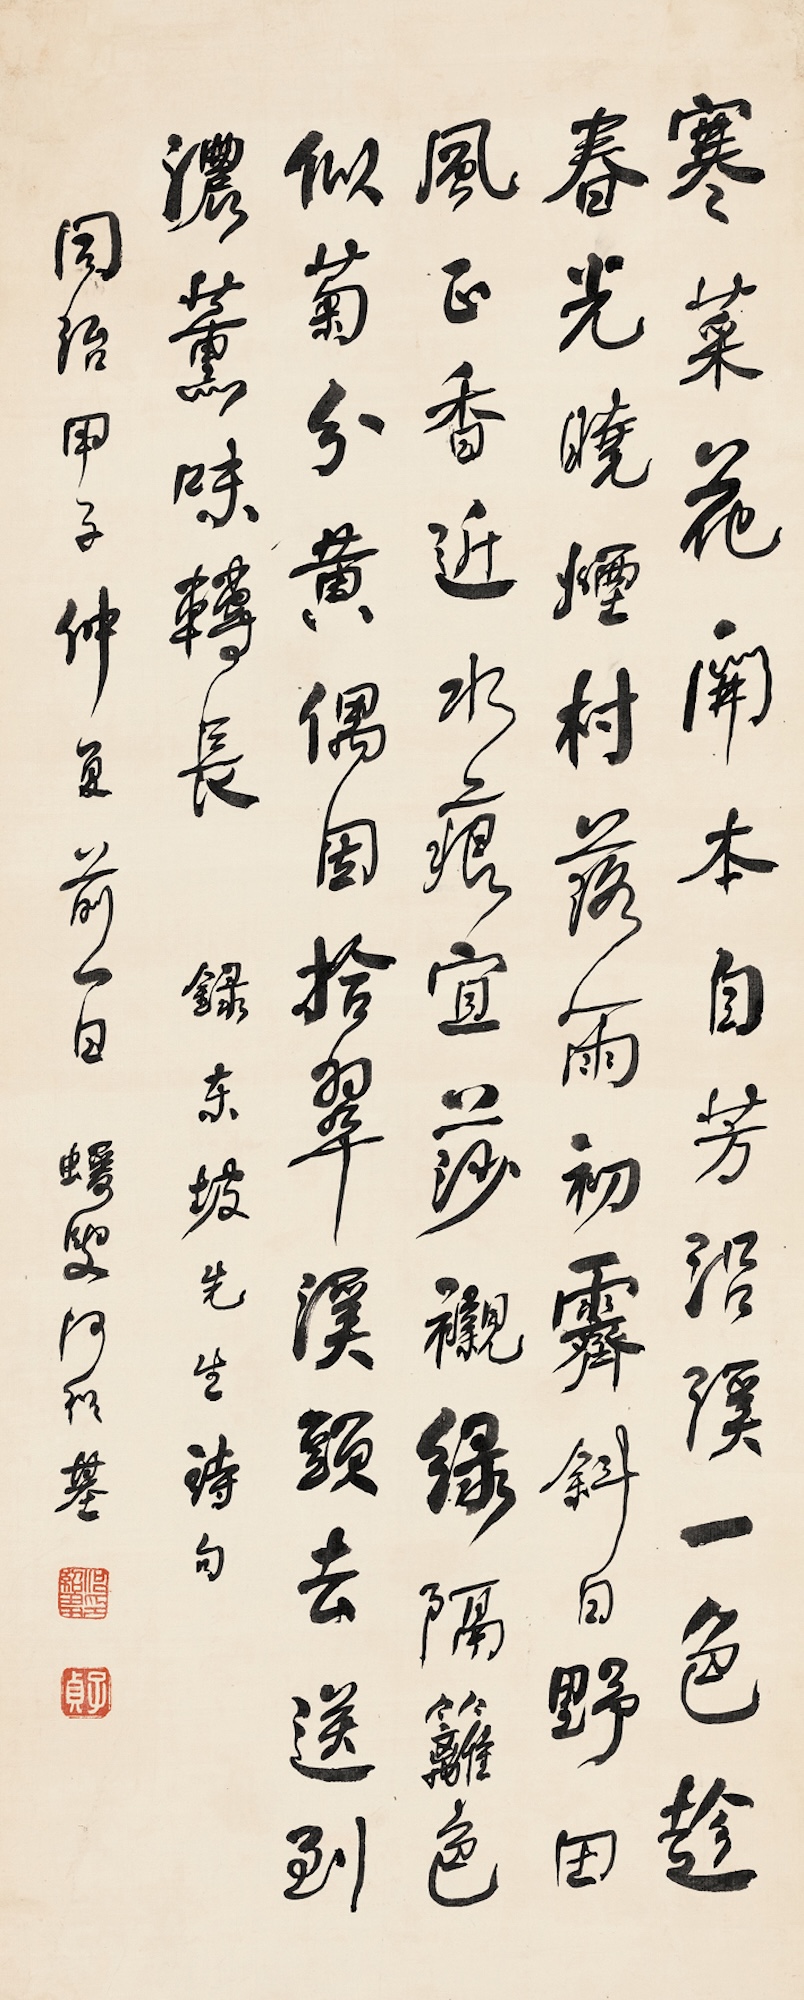 寒菜花開本自芳沿溪一色趁
春光曉煙村落雨初霽斜日野田
風正香近水痕宜莎襯綠隔籬色
似菊分黃偶因拾翠溪頭去送到
濃薰味轉長　錄東坡先生詩句
同治甲子仲夏前一日　蝯叟何紹基
何紹基印
子貞